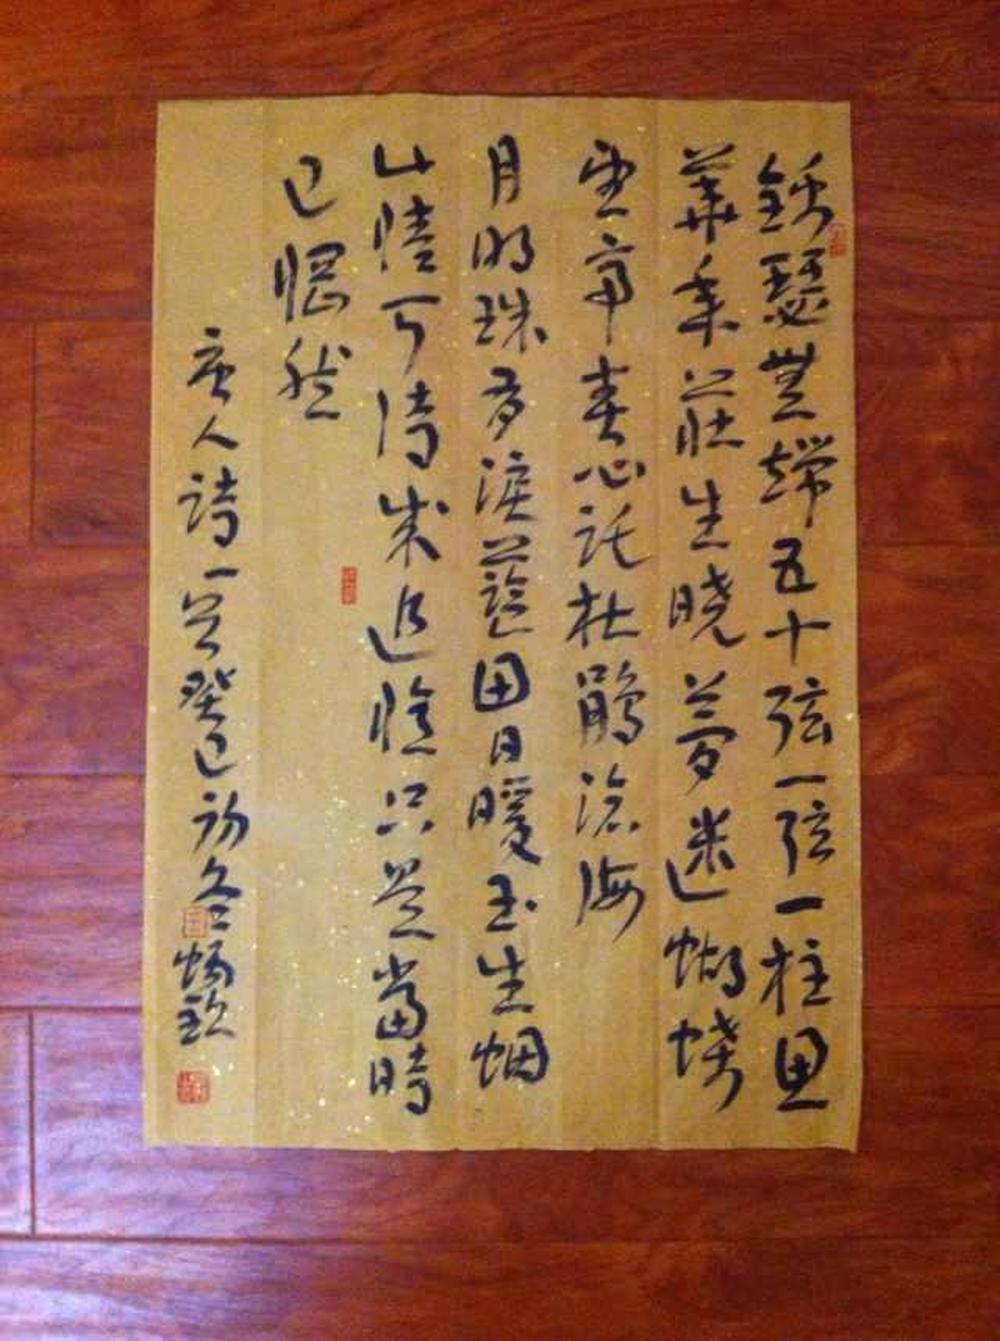 錦瑟無端五十弦一弦一柱思
華年莊生曉夢迷蝴蝶
望帝春心託杜鵑滄海
月明珠有淚藍田日暖玉生烟
此情可待成追憶只是當時
已惘然
唐人詩一首癸巳初冬炳欽